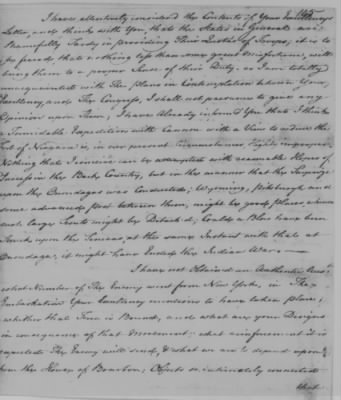 I have attentively considered the Contents of Your Excellency's
Letter, and think with You, that the States in General are
Shamefully Tardy in providing their Quotas of Troops; it is to
be feared, that nothing less than some great misfortune, will
bring them to a proper Sense of their Duty. As I am totally
unacquainted with the plans in Contemplation between Your
Excellency and the Congress, I shall not presume to give any
Opinion upon Them; I have Already informed You that I think
a Formidable Expedition with Cannon with a View to reduce the
Fort of Niagara is, in our present Circumstances, highly improper.
Nothing that I conceive can be attempted with reasonable Hopes of
Success in the Back Country, but in the manner that the Surprize
upon the Onondagas was Conducted; Wyoming, Pittsburgh and
some advanced post between them, might be good places, whence
such large Scouts might be Detach'd; Could a Blow have been
Struck upon the Senecas, at the same Instant with that at
Onondaga, it might have Ended the Indian War.
I have not Obtained an Authentic Acct.
what Number of The Enemy went from New York, in The
Embarkation Your Excellency mentions to have taken place;
whether that Fleet is Bound, and what are your Designs
in consequence of that movement; what reinforcement it is
expected The Enemy will send, & what we are to depend upon
from the House of Bourbon; Objects so intimately connected
that